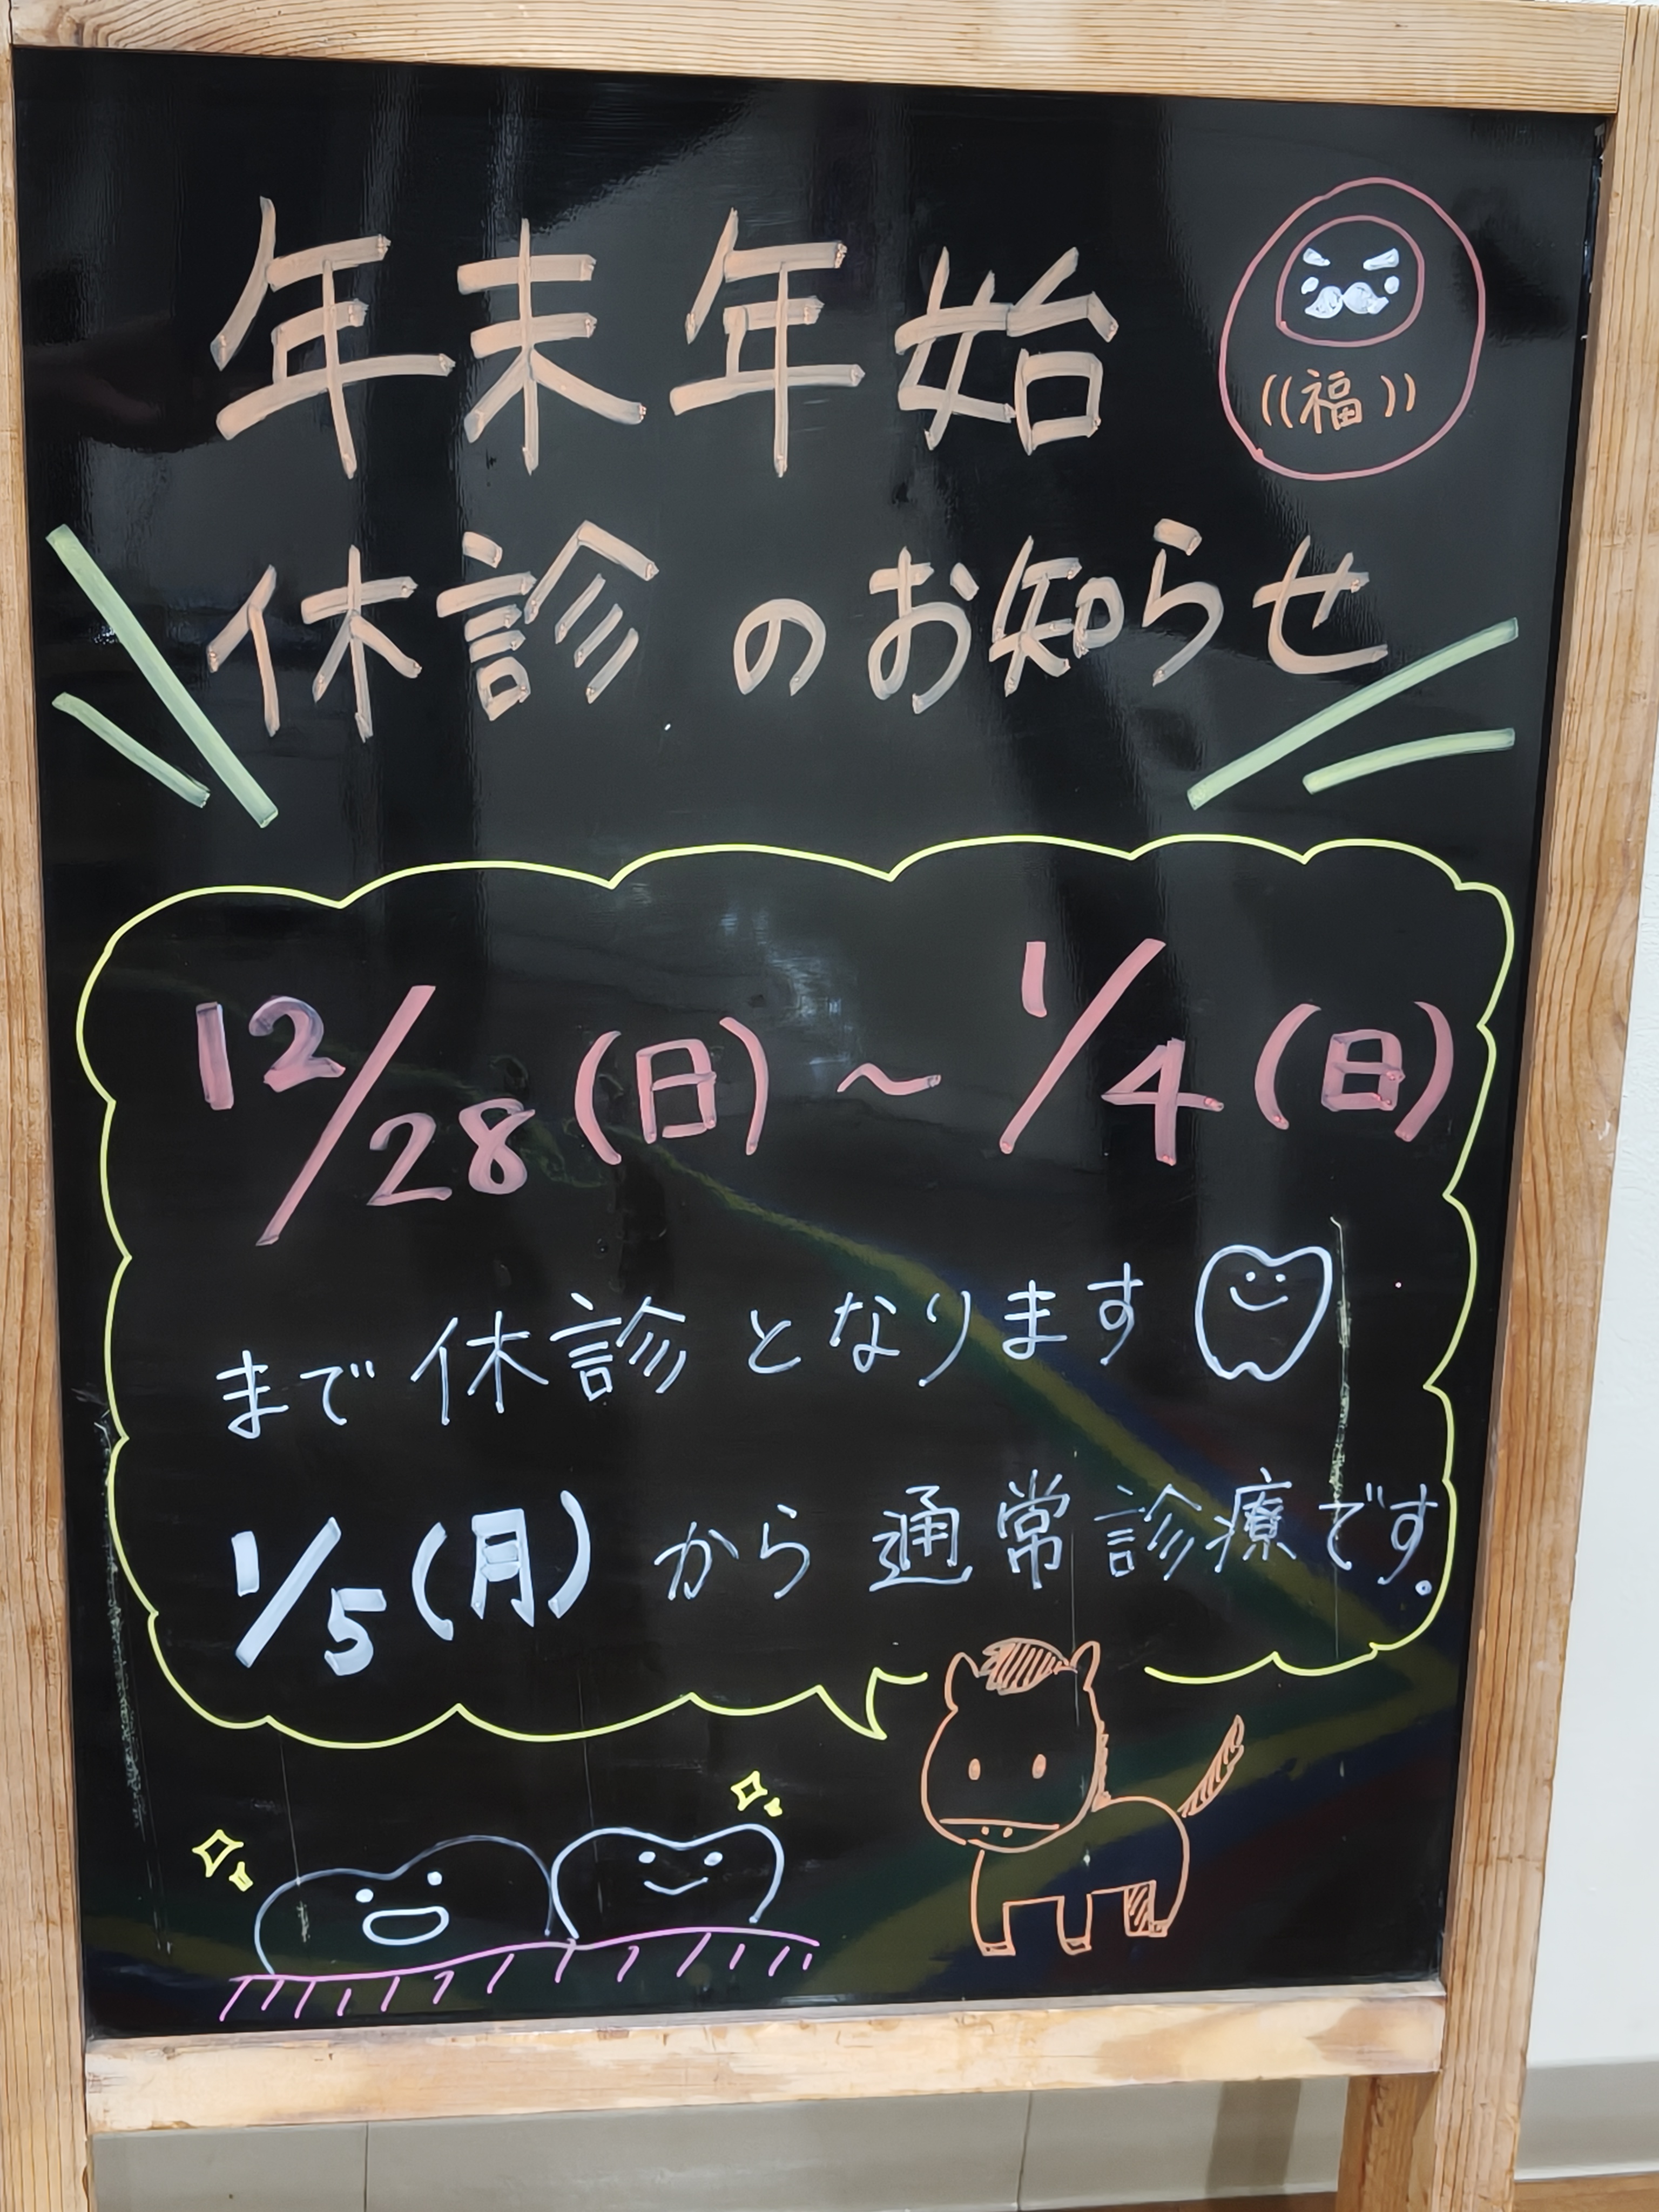 年末年始
((福))
休診のお知らせ
12/28(日)～1/4(日)
まで休診となります
1/5(月)から通常診療です。